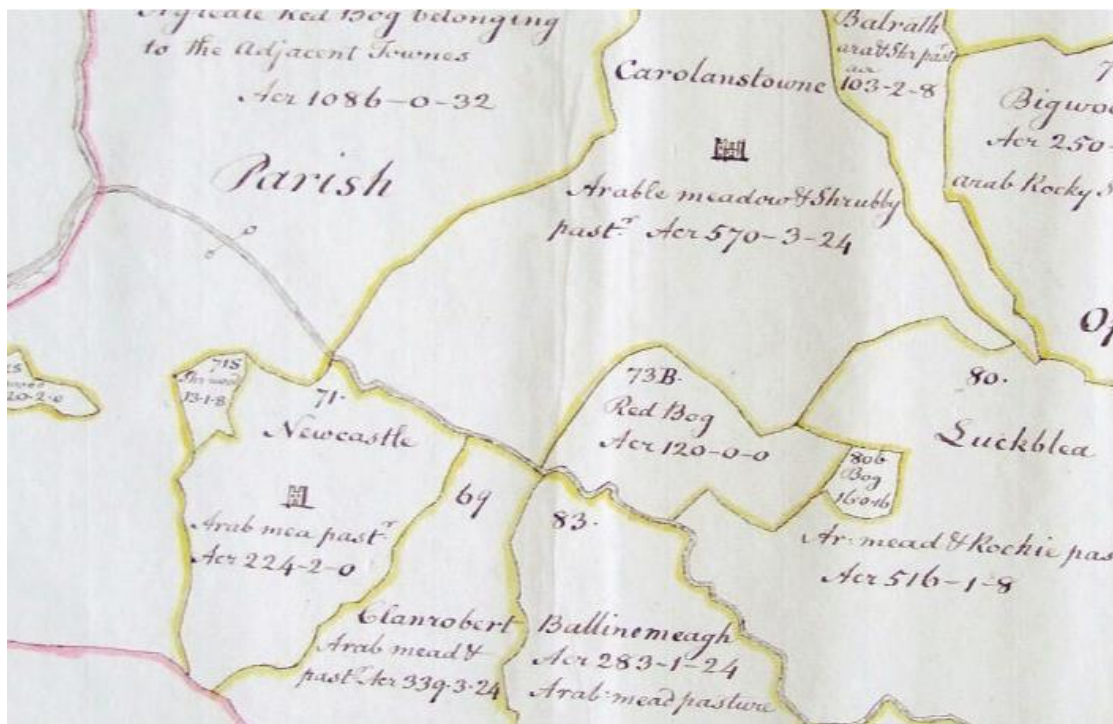 Red Bog belonging
to the Adjacent Townes
Acr 1086-0-32
Parish
Carolanstowne
Arable meadow & Shrubby
past.r Acr 570-3-24
Balrath
ara & Shr past
acr
103-2-8
Acr 250-
arab Rocky
71S
13-1-8
20-2-0
71.
Newcastle
Arab mea past.r
Acr 224-2-0
69
Clanrobert
Arab mead &
past.r Acr 339-3-24
73B.
Red Bog
Acr 120-0-0
83.
Ballinemeagh
Acr 283-1-24
Arab: mead pasture
80.
Luckblea
80b
Bog
16-0-16
Ar: mead & Rockie pas
Acr 516-1-8